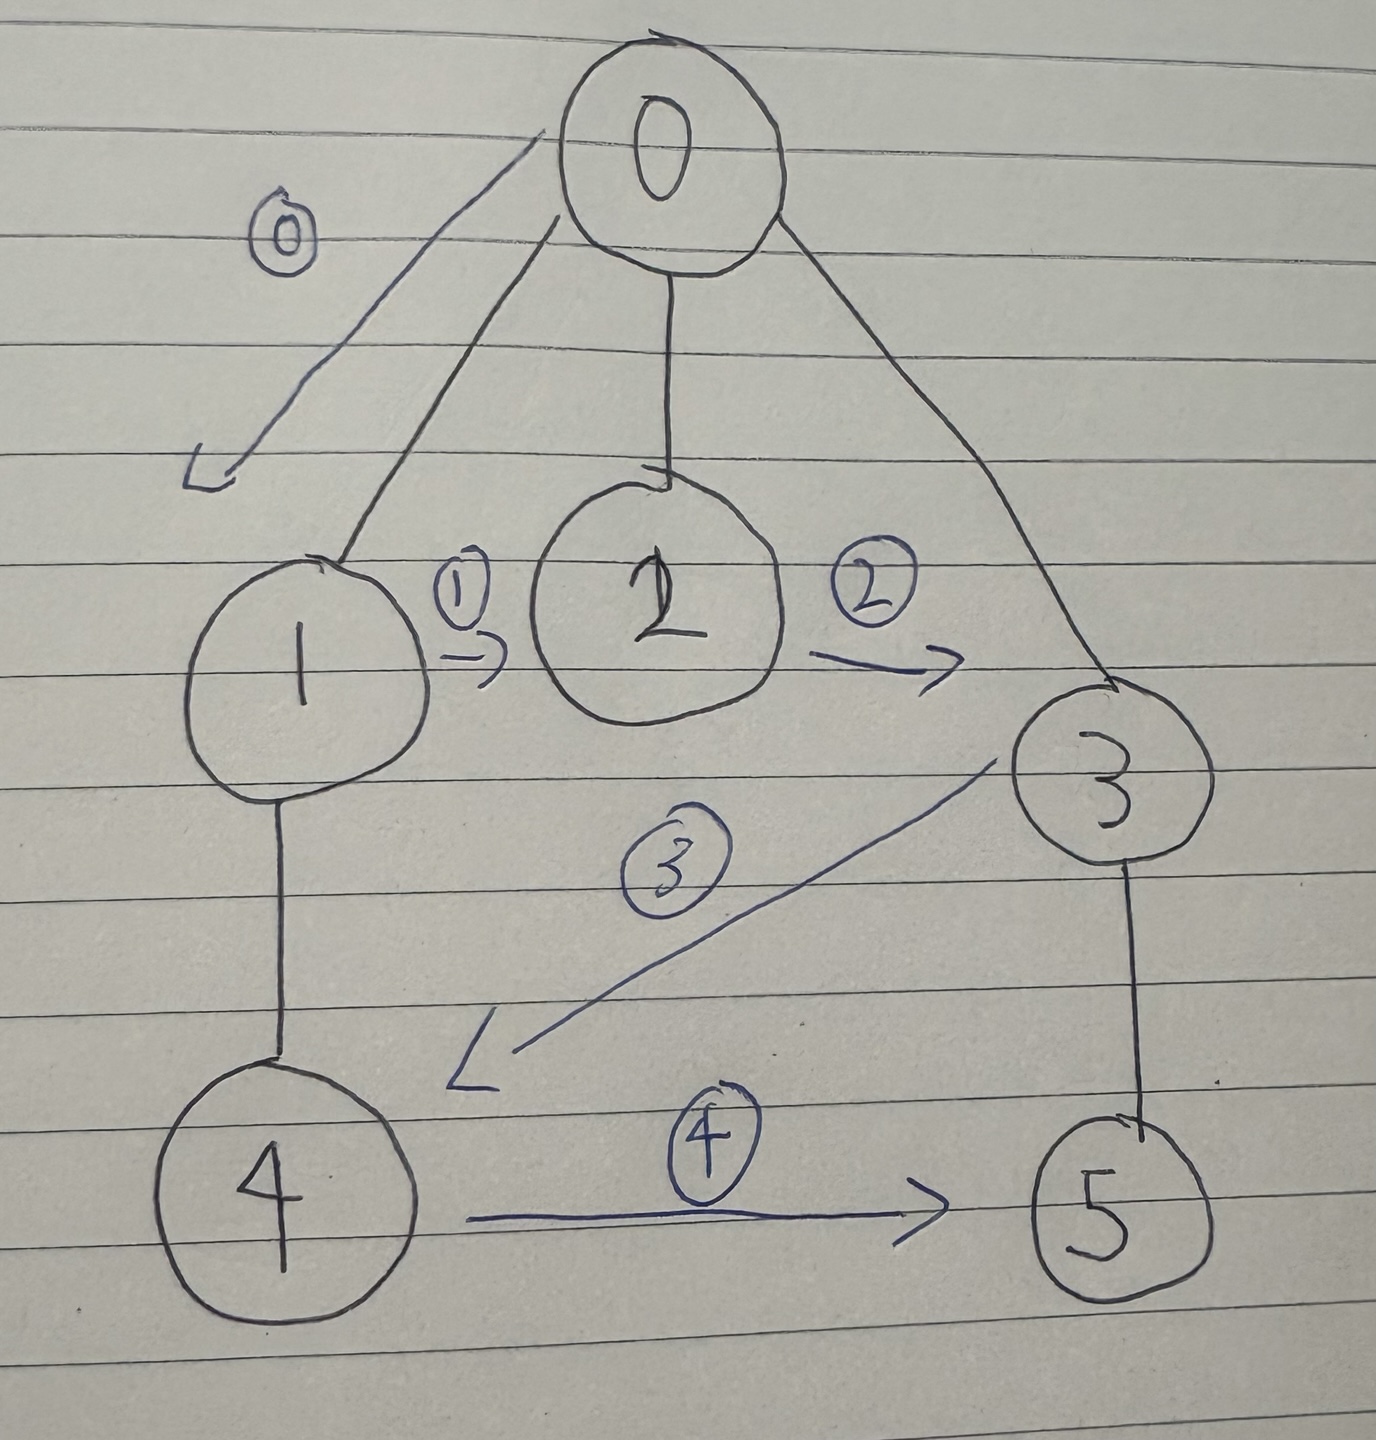 0
0
1
1
2
2
3
3
4
4
5